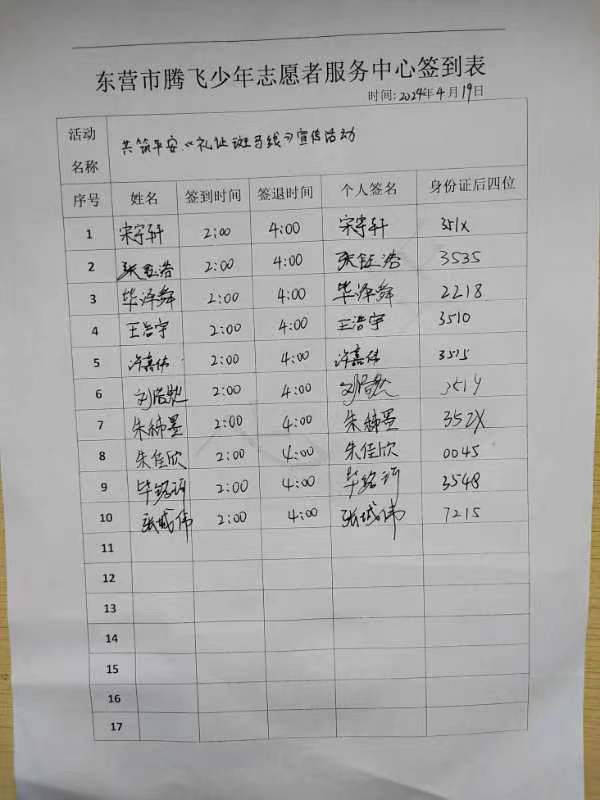 东营市腾飞少年志愿者服务中心签到表
时间: 2024年4月19日
活动名称 共筑平安《礼让斑马线》宣传活动
序号 姓名 签到时间 签退时间 个人签名 身份证后四位
1 宋宇轩 2:00 4:00 宋宇轩 351X
2 张钰浩 2:00 4:00 张钰浩 3535
3 毕泽舜 2:00 4:00 毕泽舜 2218
4 王浩宇 2:00 4:00 王浩宇 3510
5 许嘉伟 2:00 4:00 许嘉伟 3515
6 刘浩然 2:00 4:00 刘浩然
7 朱 墨 2:00 4:00 朱 墨 352X
8 朱佳欣 2:00 4:00 朱佳欣 0045
9 毕铭 2:00 4:00 毕铭 3548
10 张城伟 2:00 4:00 张城伟 7215
11
12
13
14
15
16
17